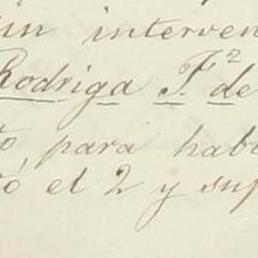 in interven
Rodriga F.² de
to para hab
ó el 2 y sup